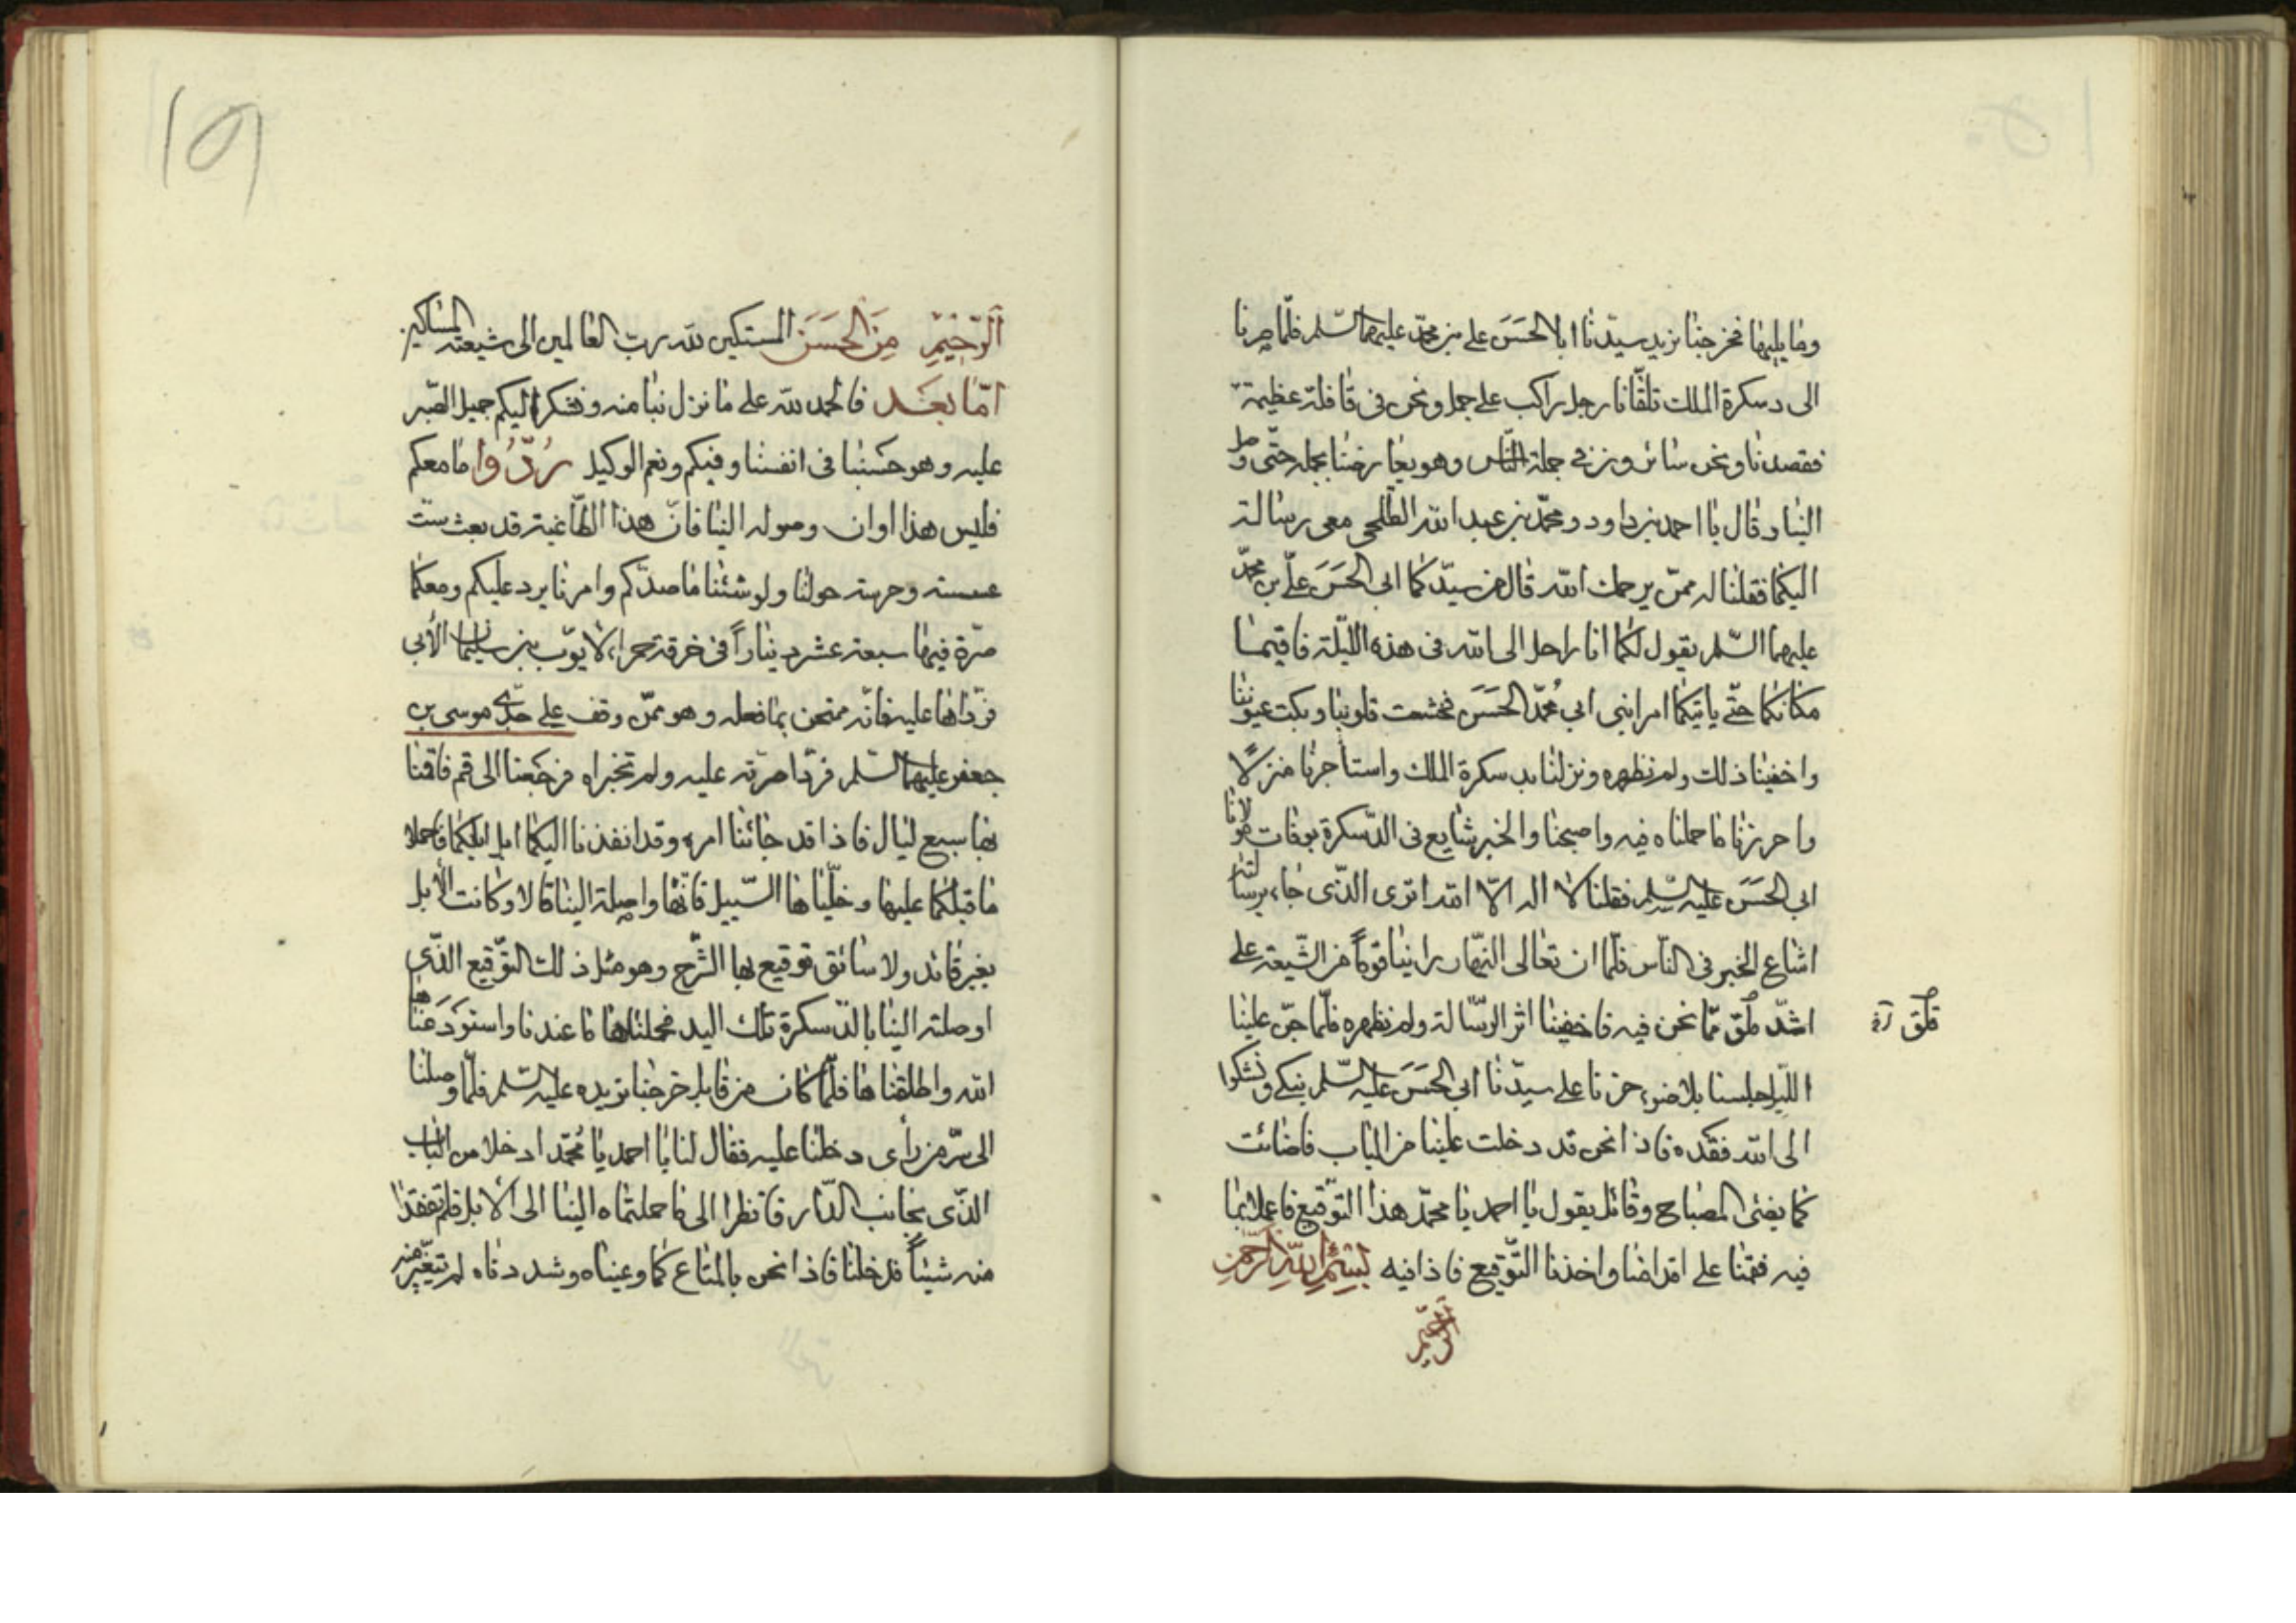 وما يليها فخرجنا نريد سيدنا ابا الحسن علي بن محمد عليهما السلم فلما صرنا
الى دسكرة الملك تلقانا رجل راكب على جمل ونحن في قافلة عظيمة
فقصدنا ونحن سائرون في جملة الناس وهو يعارضنا بجمله حتى وصل
الينا وقال يا احمد بن داود ومحمد بن عبد الله الطلحي معي رسالة
اليكما فقلنا له ممن يرحمك الله قال من سيدكما ابي الحسن علي بن محمد
عليهما السلم يقول لكما انا راحل الى الله في هذه الليلة فاقيما
مكانكما حتى ياتيكما امر ابني ابي محمد الحسن فخشعت قلوبنا وبكت عيوننا
واخفينا ذلك ولم نظهره ونزلنا بدسكرة الملك واستاجرنا منزلاً
واحرزنا ما حملناه فيه واصبحنا والخبر شايع في الدسكرة بوفات مولانا
ابي الحسن عليه السلم فقلنا لا اله الا الله اترى الذي جاء برسالته
اشاع الخبر في الناس فلما ان تعالى النهار راينا قوماً من الشيعة على
اشد قلق مما نحن فيه فاخفينا اثر الرسالة ولم نظهره فلما جن علينا
قلق
الليل جلسنا بلا ضوء حزنا على سيدنا ابي الحسن عليه السلم نبكي ونشكوا
الى الله فقده فاذا نحن قد دخلت علينا من الباب فاضائت
كما يضئ المصباح وقائل يقول يا احمد يا محمد هذا التوقيع فاعملا بما
فيه فقمنا على اقدامنا واخذنا التوقيع فاذا فيه بسم الله الرحمن
الرحيم
١٥١
الرحيم من الحسن المستكين لله رب العالمين الى شيعته المساكين
اما بعد فالحمد لله على ما نزل بنا منه ونشكر اليكم جميل الصبر
عليه وهو حسبنا في انفسنا وفيكم ونعم الوكيل ردوا ما معكم
فليس هذا اوان وصوله الينا فان هذا الطاغية قد بعث ستة
عسسه وحرسه حولنا ولو شئنا ما صدكم وامرنا يرد عليكم ومعكما
صرة فيها سبعة عشر ديناراً في خرقة حمراء لايوب بن سليمان الأبي
فرداها عليه فانه ممتحن بما فعله وهو ممن وقف على جدي موسى بن
جعفر عليهما السلم فردا صرته عليه ولم تخبراه فرجعنا الى قم فاقمنا
بها سبع ليال فاذا قد جائنا امره وقد انفذنا اليكما ابل فاحملا
ما قبلكما عليها وخليا ها السبيل فانها واصلة الينا قالا وكانت الأبل
بغير قائد ولا سائق توقيع بها الشرح وهو مثل ذلك التوقيع الذي
اوصلته الينا بالدسكرة تلك اليد فحملنا ها ما عندنا واستودعناها
الله واطلقناها فلما كان من قابل خرجنا نريده عليه السلم فلما وصلنا
الى سر من رأى دخلنا عليه فقال لنا يا احمد يا محمد ادخلا من الباب
الذي بجانب الدار فانظرا الى ما حملتماه الينا الى الأبل فلم تفقدا
منه شيئاً فدخلنا فاذا نحن بالمتاع كما وعيناه وشددناه لم تتغير منه